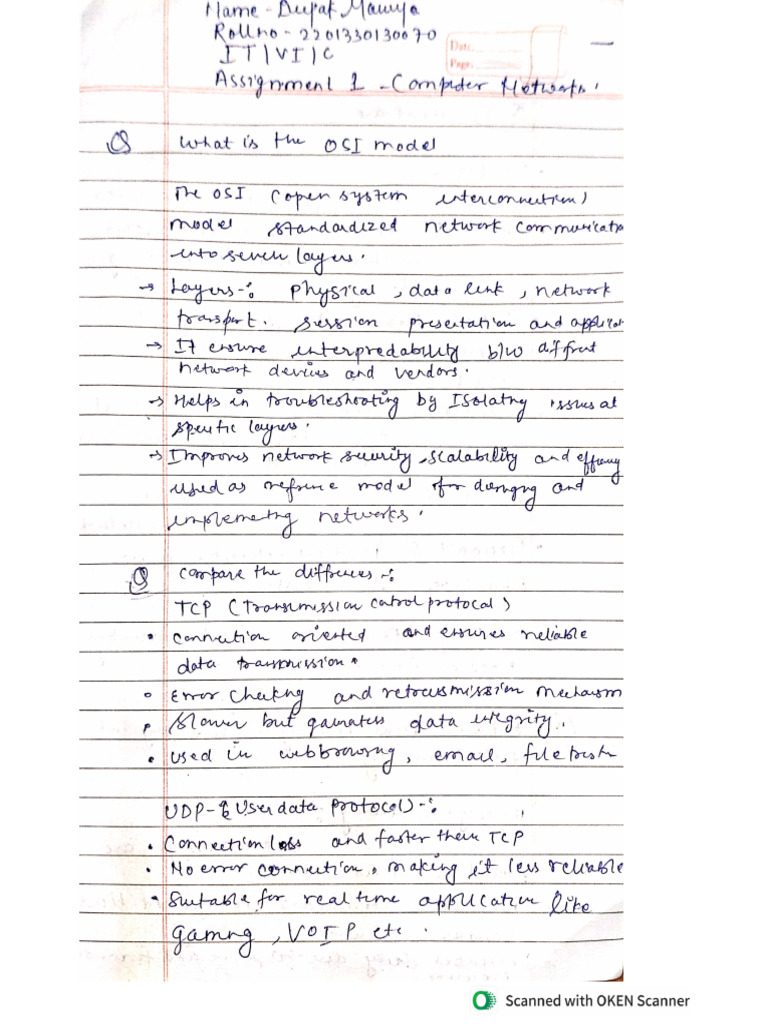 Name - Deepak Maurya
Roll no - 2201330130070
IT | VI | C
Date:
Page:
Assignment 1 - Computer Networks.
Q What is the OSI model
The OSI (open system interconnection)
model standardized network communicatn
into seven layers.
→ Layers-: Physical, data link, network
transport. session presentation and applicat
→ It ensure interpredability b/w diffrent
network devices and vendors.
→ Helps in troubleshooting by Isolatng issues at
specific layers.
→ Improves network security, scalability and
used as refrence model for and
implementng networks.
Q Compare the diffrences -:
TCP (Transmission Control protocal)
• Connection oriented and ensures reliable
data transmission.
• Error checkng and mechanism
• Slower but data integrity.
• used in webbrowsng, email, file
UDP - User data protocol) -:
• Connection less and faster then TCP
• No error connection, making it less reliable
• Suitable for real time application like
gamng, VOIP etc.
Scanned with OKEN Scanner